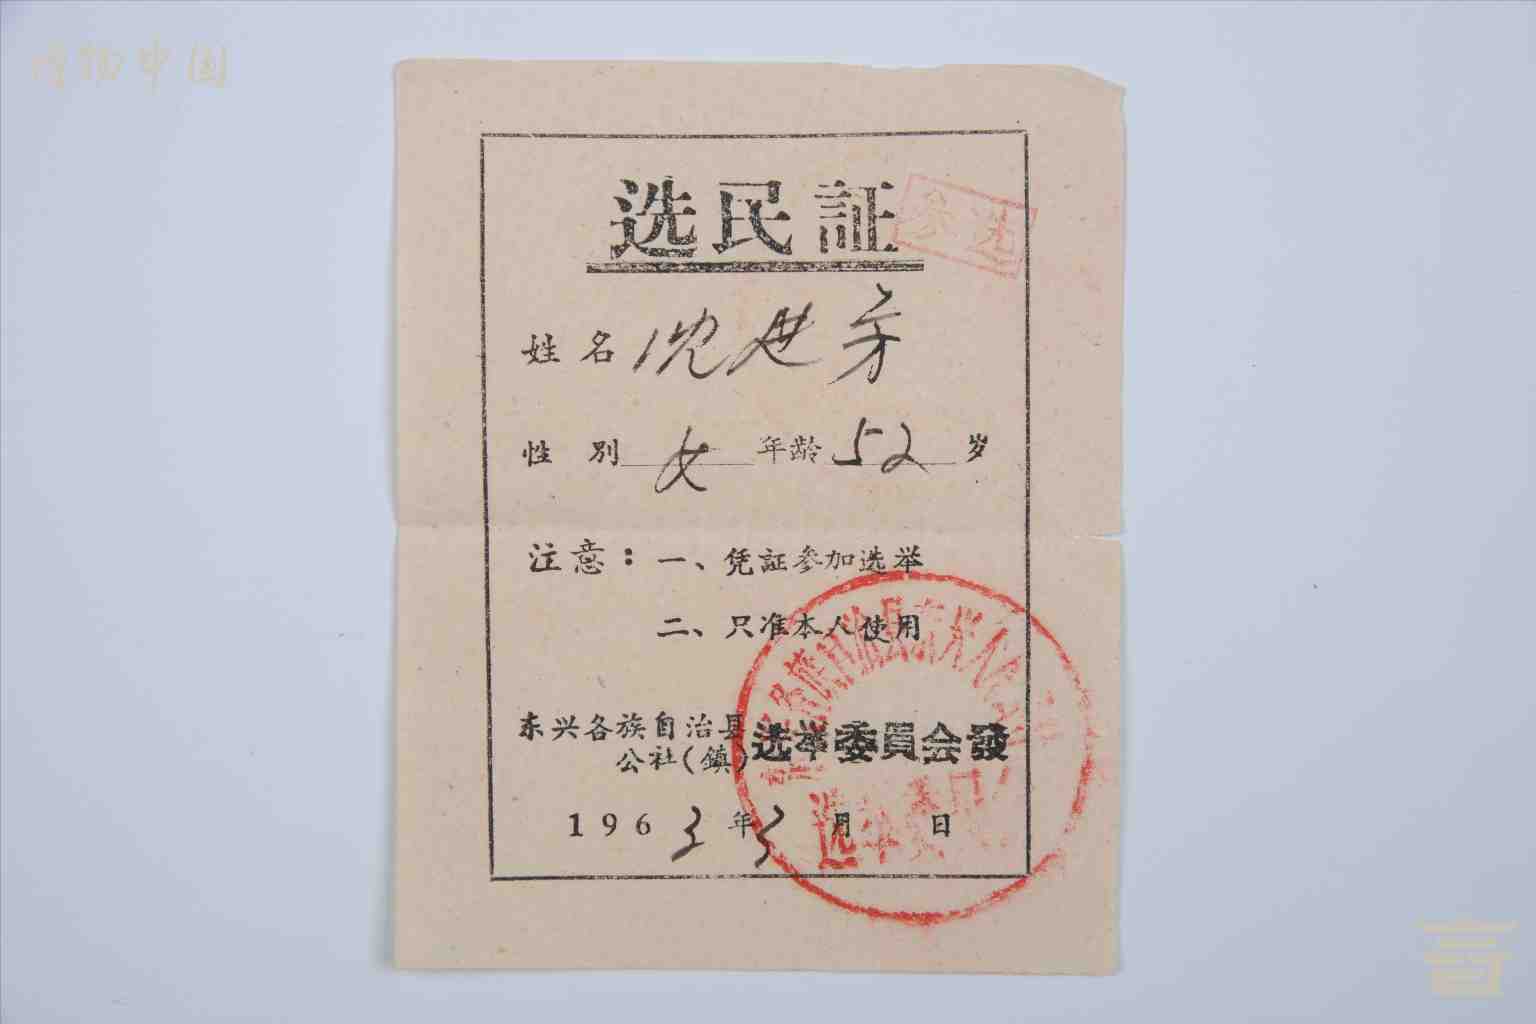 博物中国
选民証
参选
姓名 沈世芳
性別 女 年龄 52 岁
注意：一、凭証参加选举
二、只准本人使用
东兴各族自治县
公社(鎮) 选举委員会發
1963年3月 日